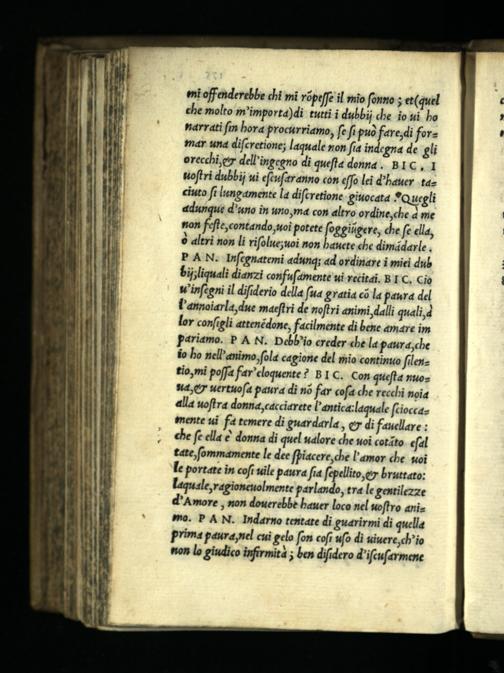 mi offenderebbe chi mi rõpesse il mio sonno ; et(quel
che molto m'importa)di tutti i dubbij che io ui ho
narrati sin hora procurriamo, se si può fare,di for=
mar una discretione; laquale non sia indegna de gli
orecchi,& dell'ingegno di questa donna . BIC. I
uostri dubbij ui escusaranno con esso lei d'hauer ta=
ciuto si lungamente la discretione giuocata . Quegli
adunque d'uno in uno,ma con altro ordine,che à me
non feste,contando,uoi potete soggiũgere, che se ella,
ò altri non li risolue;uoi non hauete che dimãdarle .
PAN. Insegnatemi adunq; ad ordinare i miei dub
bij;liquali dianzi confusamente ui recitai. BIC. Cio
u'insegni il disiderio della sua gratia cõ la paura del
l'annoiarla,due maestri de nostri animi,dalli quali,à
lor consigli attenẽdone, facilmente di bene amare im
pariamo. PAN. Debb'io creder che la paura,che
io ho nell'animo,sola cagione del mio continuo silen=
tio,mi possa far'eloquente ? BIC. Con questa nuo=
ua,& uertuosa paura di nõ far cosa che rechi noia
alla uostra donna,cacciarete l'antica:laquale sciocca=
mente ui fa temere di guardarla , & di fauellare :
che se ella è donna di quel ualore che uoi cotãto esal
tate,sommamente le dee spiacere,che l'amor che uoi
le portate in cosi uile paura sia sepellito,& bruttato:
laquale,ragioneuolmente parlando, tra le gentilezze
d'Amore , non douerebbe hauer loco nel uostro ani=
mo. PAN. Indarno tentate di guarirmi di quella
prima paura,nel cui gelo son cosi uso di uiuere,ch'io
non lo giudico infirmità ; ben disidero d'iscusarmene